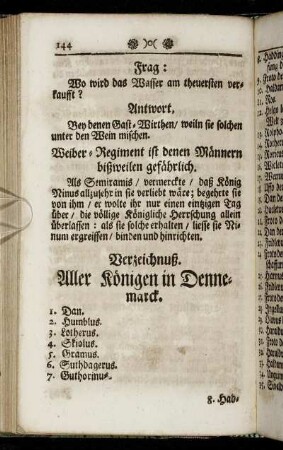 144
Frag:
Wo wird das Wasser am theuersten ver-
kaufft?
Antwort,
Bey denen Gast-Wirthen/ weiln sie solchen
unter den Wein mischen.
Weiber-Regiment ist denen Männern
bißweilen gefährlich.
Als Semiramis/ vermerckte/ daß König
Ninus allzusehr in sie verliebt wäre; begehrte sie
von ihm/ er wolte ihr nur einen eintzigen Tag
über/ die völlige Königliche Herrschung allein
überlassen: als sie solche erhalten/ liesse sie Ni-
num ergreiffen/ binden und hinrichten.
Verzeichnuß.
Aller Königen in Denne-
marck.
1. Dan.
2. Humblus.
3. Lotherus.
4. Skiolus.
5. Gramus.
6. Suthdagerus.
7. Guthorinus.
8. Had-